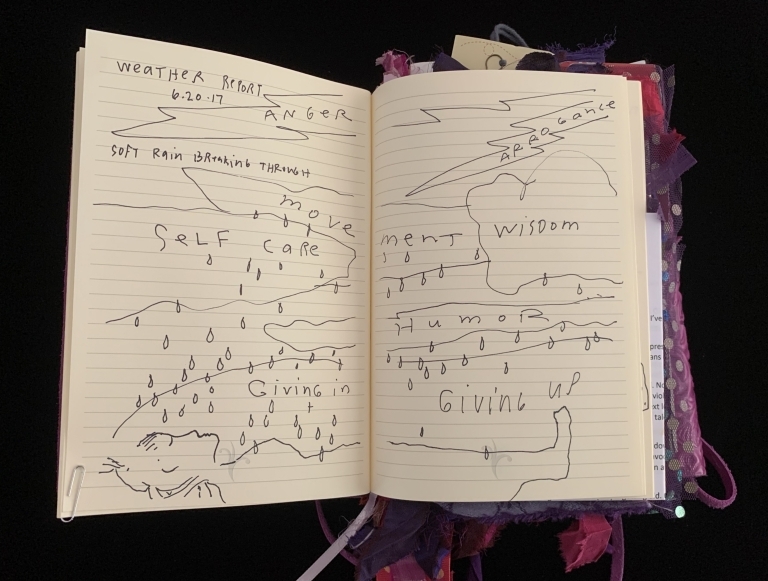 WeATHER RePORT
6.20.17
ANGeR
SOFT RaiN BReaKiNG THROUGH
move
SeLF CaRe
Giving in
+
ARROGance
menT
WISDOM
HumOR
GiViNG UP
I've